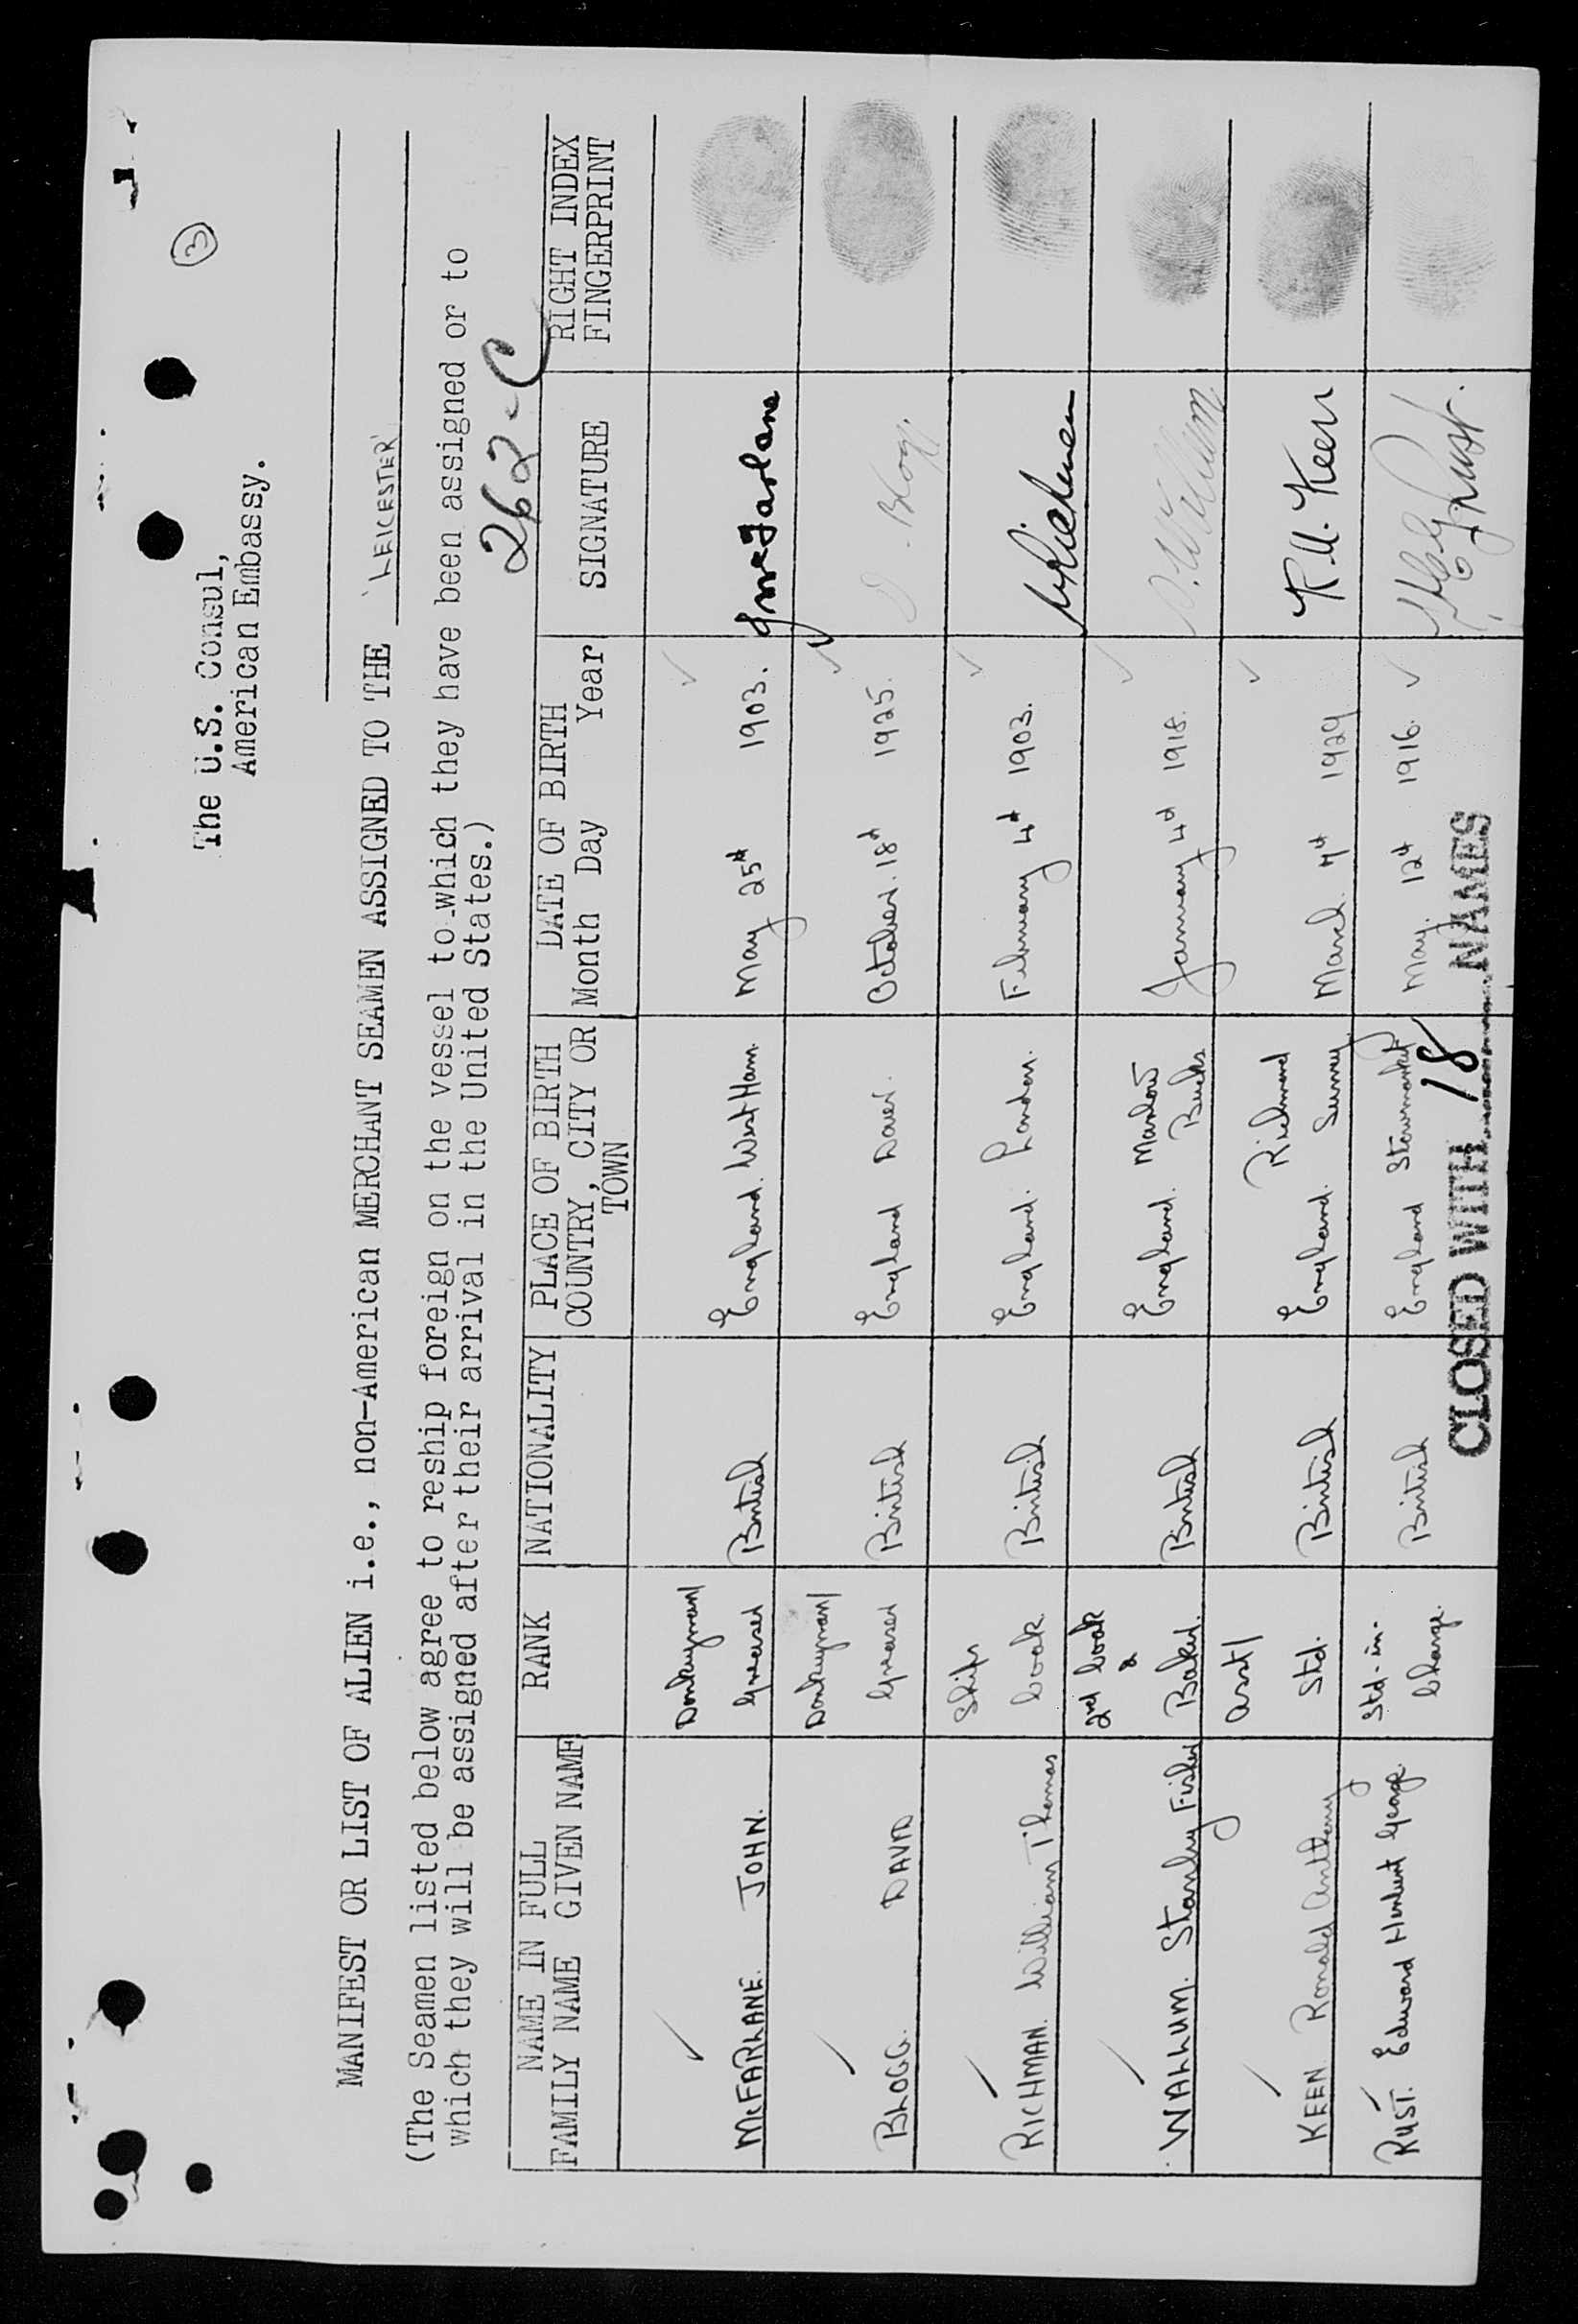 3
The U.S. Consul,
American Embassy.
MANIFEST OR LIST OF ALIEN i.e., non-American MERCHANT SEAMEN ASSIGNED TO THE 'LEICESTER'
(The Seamen listed below agree to reship foreign on the vessel to which they have been assigned or to
which they will be assigned after their arrival in the United States.)
262-C
NAME IN FULL RANK NATIONALITY PLACE OF BIRTH DATE OF BIRTH SIGNATURE RIGHT INDEX
FAMILY NAME GIVEN NAME COUNTRY, CITY OR Month Day Year FINGERPRINT
TOWN
Donkeyman/
McFARLANE. JOHN. Greaser British England. West Ham. May 25th 1903. J McFarlane
Donkeyman/
BLOGG. DAVID Greaser British England Dover. October. 18th 1925. D. Blogg.
Ships
RICHMAN. William Thomas Cook British England. London. February 4th 1903. W Richman
2nd Cook
& Marlow
WALLUM. Stanley Fisher Baker. British England. Bucks January 4th 1918. S. Wallum
Asst/ Richmond
KEEN Ronald Anthony Std. British England. Surrey March. 7th 1929 R.A. Keen
Std-in-
RUST. Edward Herbert George. Charge. British England Stowmarket May. 12th 1916. Rust.
CLOSED WITH 18 NAMES